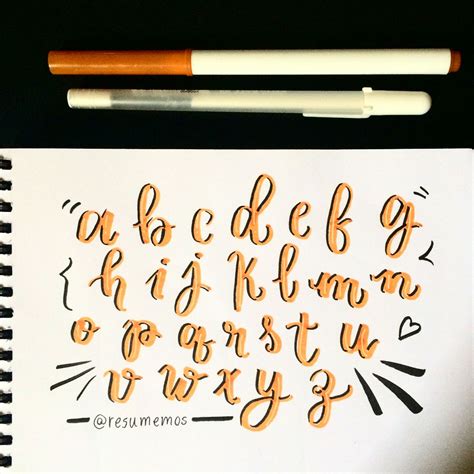 a b c d e f g
h i j k l m n
o p q r s t u
v w x y z
@resumemos